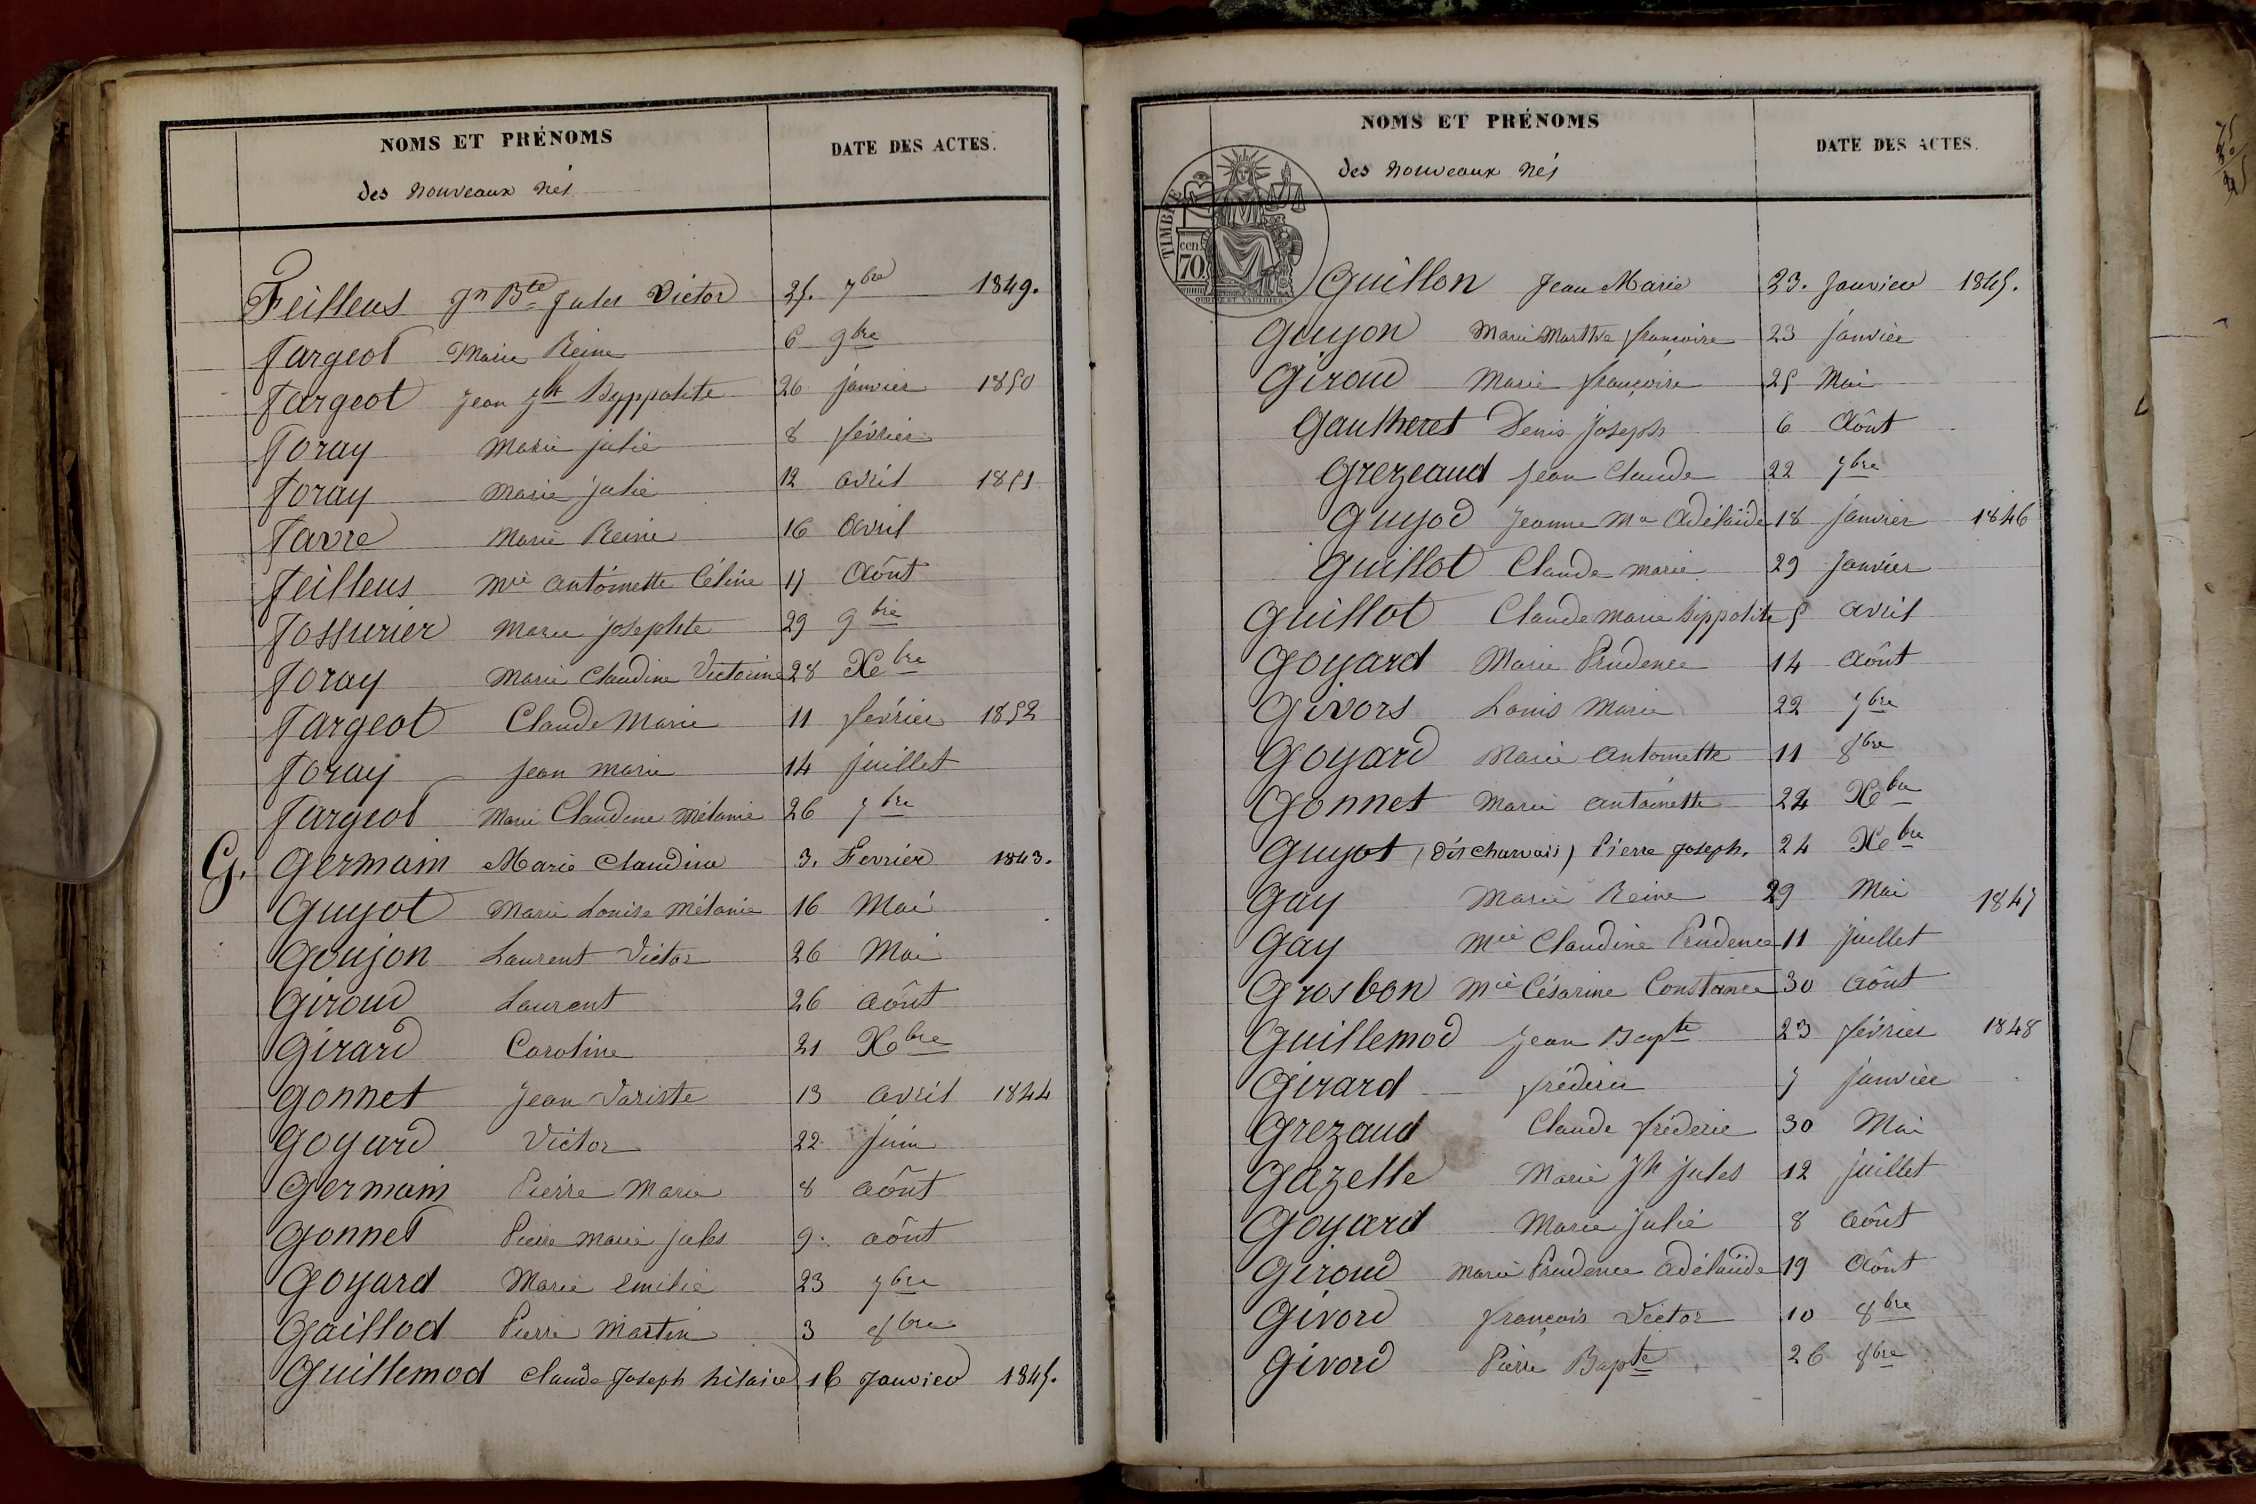 NOMS ET PRÉNOMS
DATE DES ACTES.
des nouveaux nés
Feillens Jn Bte Jules Victor 25. 7bre 1849.
Fargeot Marie Reine 6 9bre
Fargeot Jean Jh hyppolite 26 janvier 1850
Foray Marie julie 8 février
Foray Marie julie 12 avril 1851
Favre Marie Reine 16 avril
Feillens Mie antoinette Céline 17 Aôut
Fossurier Marie josephte 29 9bre
Foray Marie Claudine Victorine 28 Xbre
Fargeot Claude Marie 11 février 1852
Foray jean marie 14 juillet
Fargeot Marie Claudine mélanie 26 7bre
G. Germain Marie Claudine 3. Fevrier 1843.
Guyot Marie Louise mélanie 16 Mai
Goujon Laurent Victor 26 Mai
Giroud Laurent 26 aôut
Girard Caroline 21 Xbre
Gonnet Jean Variste 13 avril 1844
Goyard Victor 22 juin
Germain Pierre Marie 8 aôut
Gonnet Pierre marie jules 9. aôut
Goyard Marie emilie 23 7bre
Gaillod Pierre Martin 3 8bre
Guillemod Claude Joseph hilaire 16 Janvier 1845.
NOMS ET PRÉNOMS
DATE DES ACTES.
des nouveaux nés
TIMBRE
cen.
70
Guillon Jean Marie 23. Janvier 1845.
Guyon Marie Marthe françoise 23 janvier
Giroud Marie françoise 25 Mai
Gautheret Denis Joseph 6 Aôut
Grezeaud Jean Claude 22 7bre
Guyod Jeanne Ma Adélaide 18 janvier 1846
Guillot Claude marie 29 Janvier
Guillot Claude marie hippolite 5 avril
Goyard Marie Prudence 14 Aôut
Givors Louis Marie 22 7bre
Goyard Marie antoinette 11 8bre
Gonnet Marie antoinette 24 Xbre
Guyot (dit Charvais) Pierre Joseph. 24 Xbre
Gay Marie Reine 29 Mai 1847
Gay Mie Claudine Prudence 11 juillet
Grosbon Mie Césarine Constance 30 Aôut
Guillemod Jean Bapte 23 février 1848
Girard fréderic 7 janvier
Grezaud Claude fréderic 30 Mai
Gazelle Marie Jh jules 12 juillet
Goyard Marie Julie 8 Aôut
Giroud Marie Prudence Adélaïde 19 Aôut
Givord françois Victor 10 8bre
Givord Pierre Bapte 26 8bre